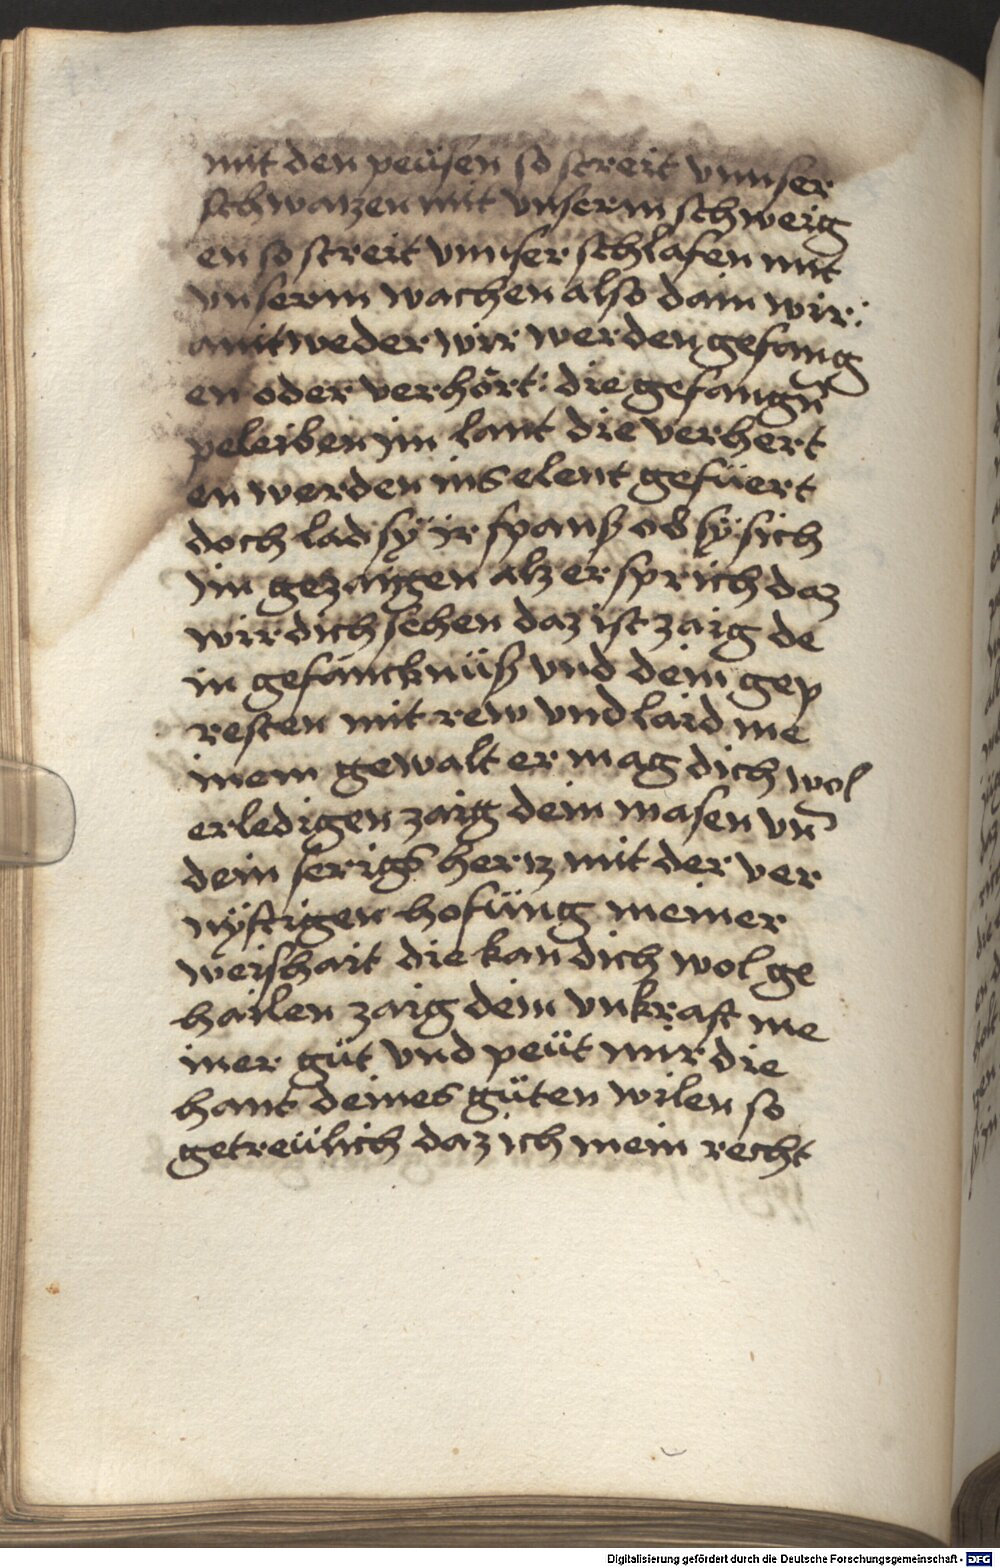 mit den peüsen so streit vnnser
schwatzen mit vnserm schweig
en so streit vnnser schlafen mit
vnserm wachen also dam wir:
antweder wir werden gefang
en oder verhört: die gefangn̄
peleiben im lant die verhert
en werden ins elent gefüert
doch lad sÿ ir spanß ob sÿ sich
im gezaigen alz er sprich daz
wir dich sehen daz ist zaig de
in gefäncknüß vnd dein gep
resten mit rew vnd laid me
inem gewalt er mag dich wol
erledigen zaig dein masen vn̄
dein serigs hertz mit der ver
nÿftigen hofüng meiner
weishait die kan dich wol ge
hailen zaig dein vnkraft me
iner güt vnd peüt mir die
hant deines güten wilen so
getreülich daz ich mein recht
Digitalisierung gefördert durch die Deutsche Forschungsgemeinschaft - DFG